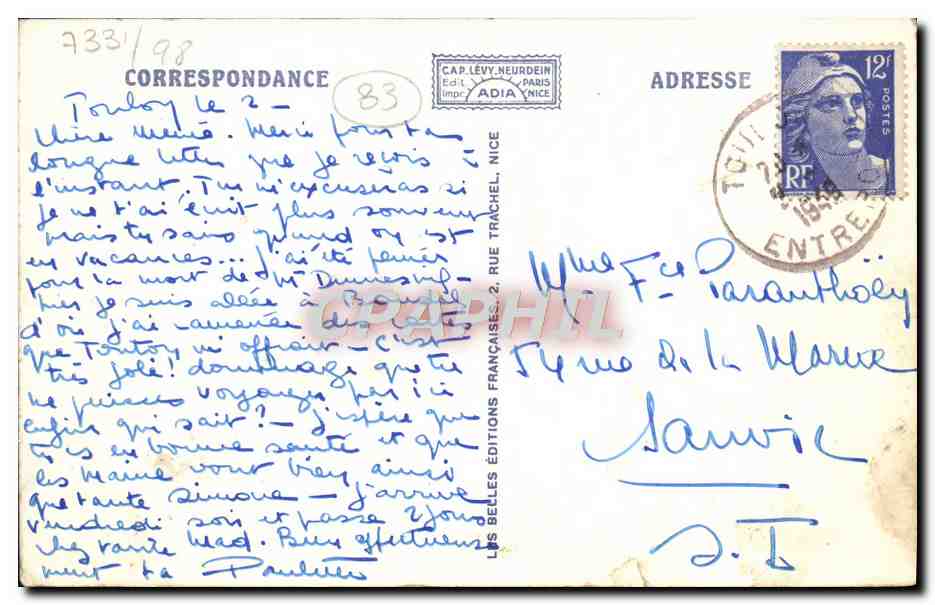 7331/98
CORRESPONDANCE
83
CAP. LÉVY. NEURDEIN
Edit PARIS
Impr. ADIA NICE
ADRESSE
12F
POSTES
RF
TOUL
1949
ENTREPO
Toulon le 2 -
Chère Mémé. Merci pour ta
longue lettre que je reçois à
l'instant. Tu m'excuseras si
je ne t'ai écrit plus souvent
mais tu sais quand on est
en vacances... j'ai été peinée
pour la mort de Mr
hier je suis allée à Bandol
d'où j'ai ramenée des cartes
que Tonton m'offrait - c'est
très joli! dommage que tu
ne puisses voyager par ici
enfin qui sait? - j'espère que
tu es en bonne santé et que
les Maine vont bien ainsi
que tante Simone - j'arrive
vendredi soir et passe 2 jours
chez tante Mad. Bien affectueuse
ment ta Paulette
LES BELLES ÉDITIONS FRANÇAISES. 2, RUE TRACHEL, NICE
CPAPHIL
Mme Fce Paranthoën
54 rue de la Marne
Sanvic
S. I.